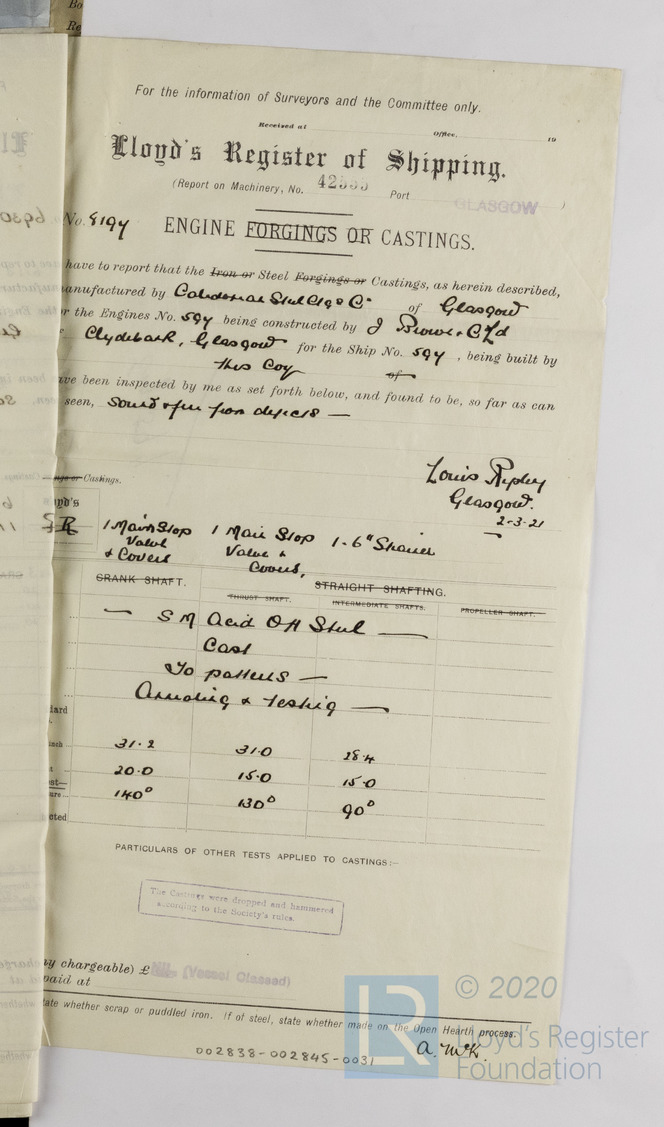 Bo
Re
For the information of Surveyors and the Committee only.
Received at Office, 19
Lloyd's Register of Shipping.
(Report on Machinery, No. 42555 Port GLASGOW )
No. 8194 ENGINE FORGINGS OR CASTINGS.
have to report that the Iron or Steel Forgings or Castings, as herein described,
anufactured by Caledonian Steel of Glasgow
r the Engines No. 594 being constructed by J Brown & C Ld
Clydebank, Glasgow for the Ship No. 594, being built by
this Coy of
ave been inspected by me as set forth below, and found to be, so far as can
seen, Sound & free from defects —
Louis Ripley
Glasgow.
2-3-21
ngs or Castings.
yd's
R
1 Main Stop Valve & Covers
1 Main Stop Valve & Covers,
1-6"
CRANK SHAFT. STRAIGHT SHAFTING.
THRUST SHAFT. INTERMEDIATE SHAFTS. PROPELLER SHAFT.
— S M Acid OH Steel —
Cast
To patterns —
Annealing & Testing —
dard
nch 31.2 31.0 28.4
t 20.0 15.0 15.0
est—
ure 140° 130° 90°
cted
PARTICULARS OF OTHER TESTS APPLIED TO CASTINGS:—
The Castings were dropped and hammered
according to the Society's rules.
ny chargeable) £ Nil (Vessel Classed)
paid at
tate whether scrap or puddled iron. If of steel, state whether made on the Open Hearth process.
A. McK.
002838-002845-0031
LR
© 2020
Lloyd's Register
Foundation